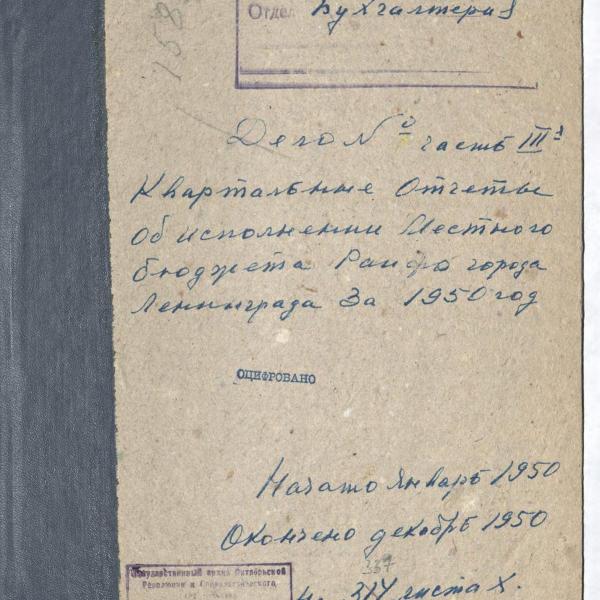 158
Отдел Бухгалтерия
Дело № часть III я
Квартальные Отчеты
Об исполнении Местного
бюджета Райфо города
Ленинграда За 1950 год
ОЦИФРОВАНО
Начато Январь 1950
Окончено декабрь 1950
337
н. 314 листах.
Государственный архив Октябрьской
Революции и Социалистического